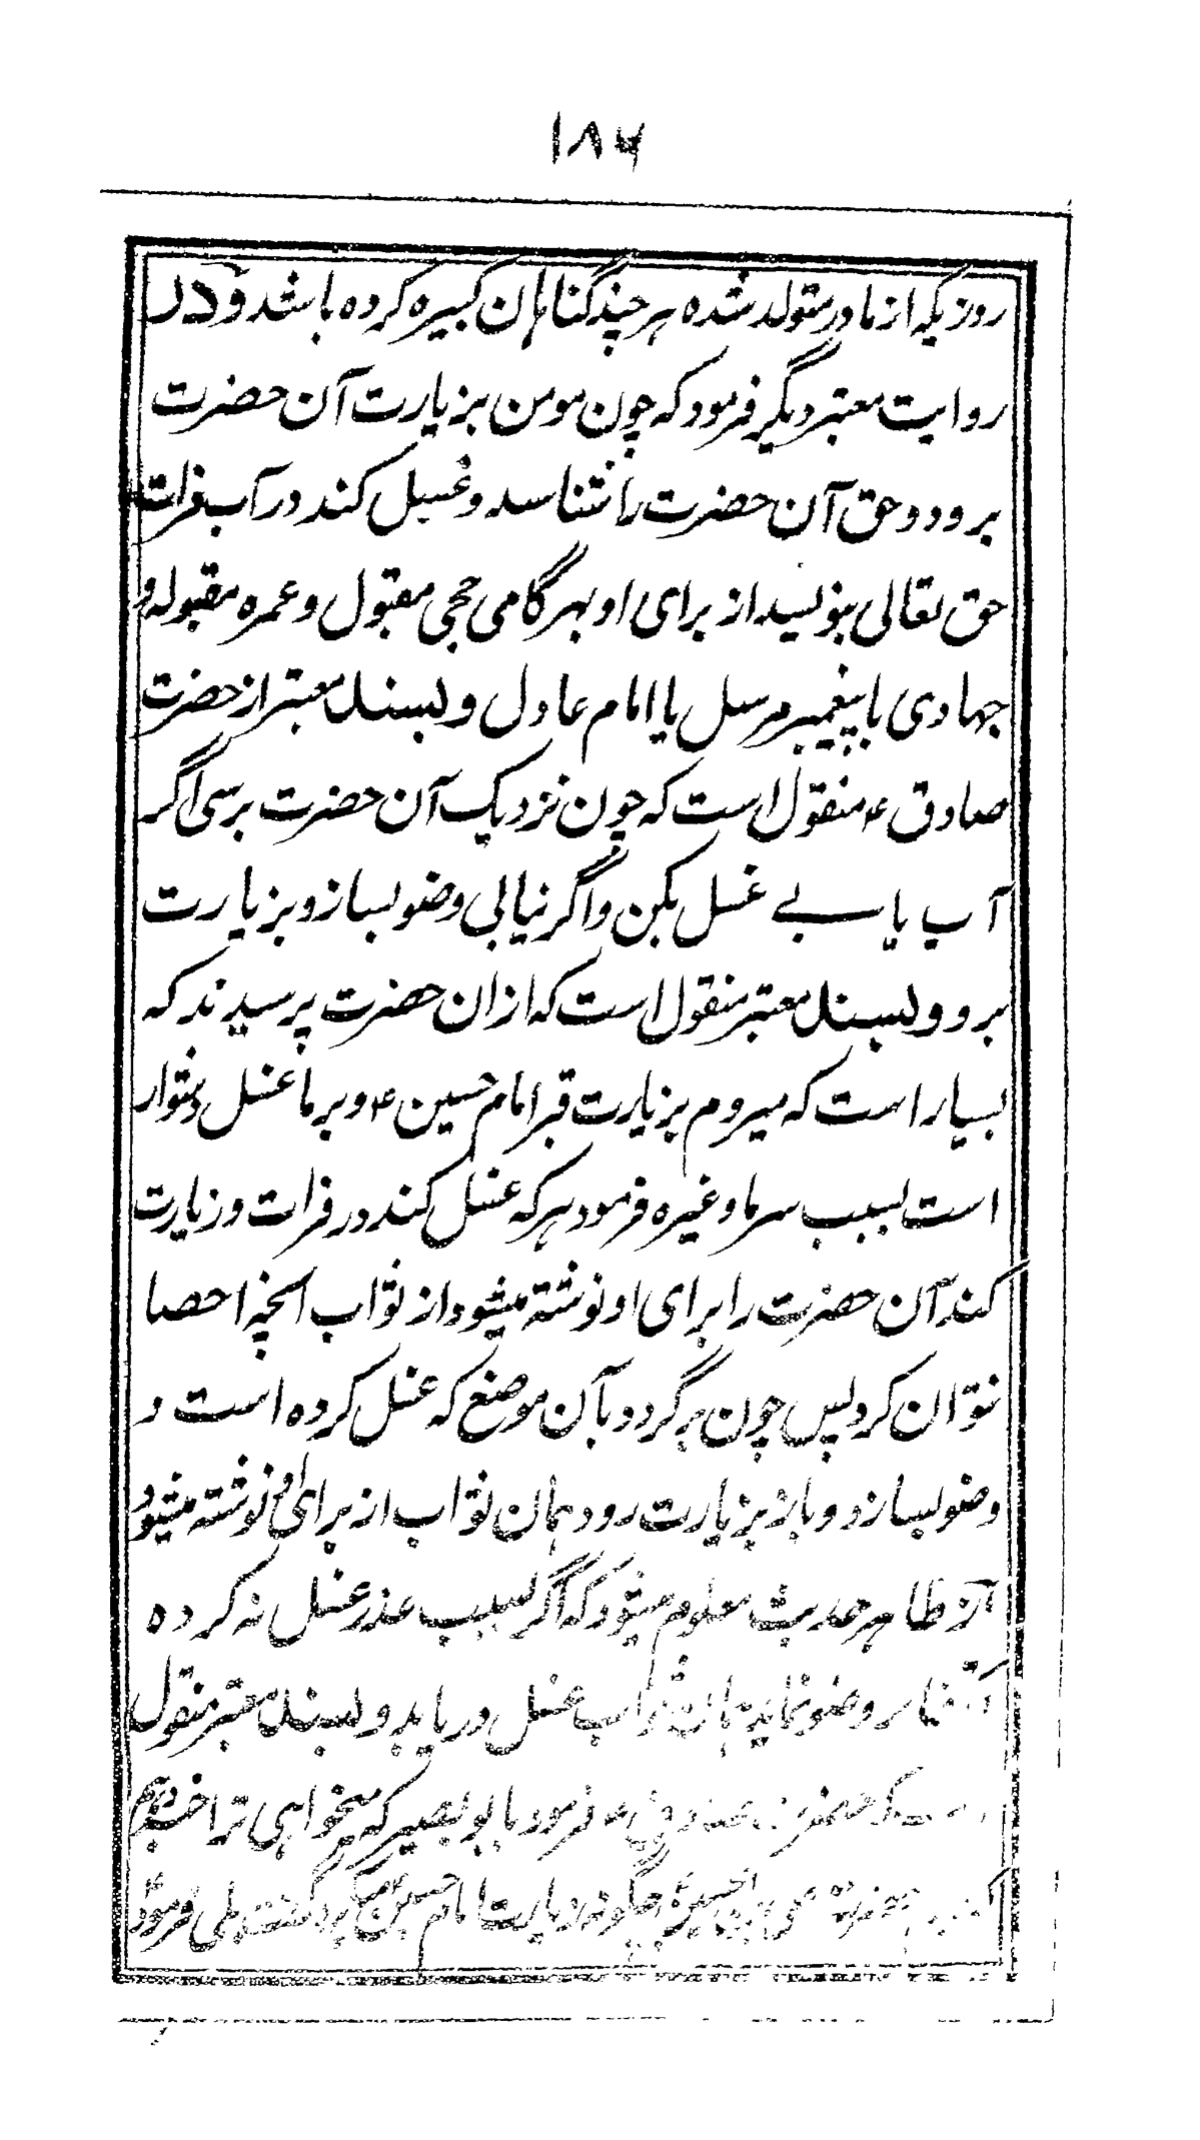 ۱۸۶
روزیکه از مادر متولد شده هر چند گناهان کبیره کرده باشد و در
روایت معتبر دیگر فرمود که چون مومن بزیارت آن حضرت
برود و حق آن حضرت را شناسد و غسل کند در آب فرات
حق تعالی بنویسد از برای او بهر گامی حجی مقبول و عمره مقبوله و
جهادی با پیغمبر مرسل یا امام عادل و بسند معتبر از حضرت
صادق ۴ منقول است که چون نزدیک آن حضرت برسی اگر
آب یابے غسل بکن و اگر نیابی وضو بساز و بزیارت
برو و بسند معتبر منقول است که ازان حضرت پرسیدند که
بسیار است که میروم بزیارت قبر امام حسین ۴ و بر ما غسل دشوار
است بسبب سرما و غیره فرمود هر که غسل کند در فرات و زیارت
کند آن حضرت را برای او نوشته میشود از ثواب آنچه احصا
نتوان کرد پس چون برگردد بآن موضع که غسل کرده است و
وضو بسازد و باز بزیارت رود همان ثواب از برای او نوشته میشود
از ظاهر حدیث معلوم میشود که اگر بسبب عذر غسل نه کرده
و وضو نماید ثواب غسل دریابد و بسند معتبر منقول
که حضرت صادق ۴ فرمود بابو بصیر که میخواهی ترا خبر دهم
چگونه زیارت امام حسین میکرد گفت بلی فرمود